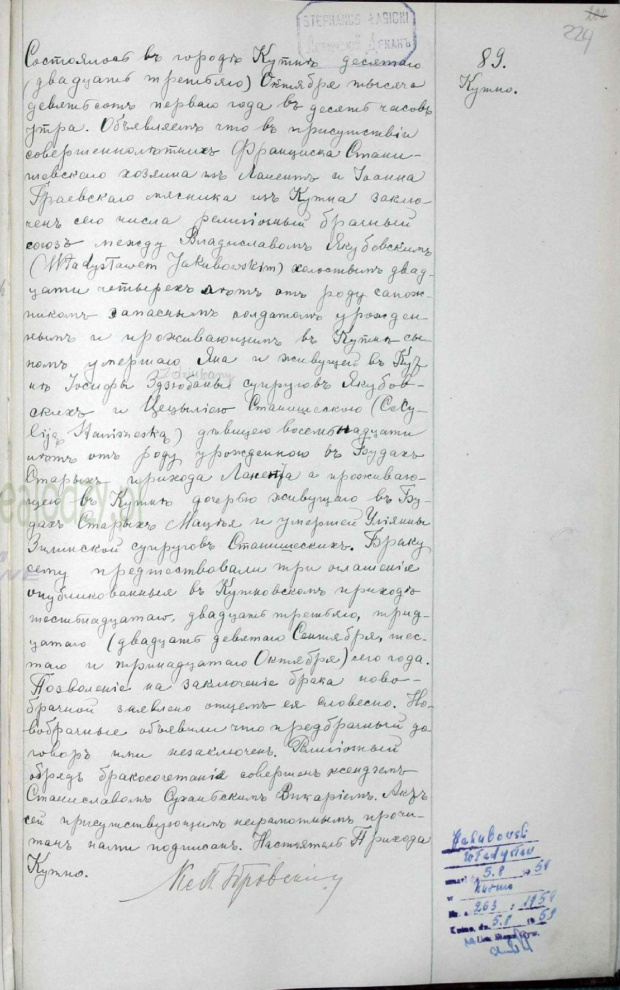 STEPHANUS ŁASICKI
224
89.
Кутно.
Состоялось въ городѣ Кутнѣ десятаго
(двадцать третьяго) Октября тысяча
девятьсотъ перваго года въ десять часовъ
утра. Объявляемъ что въ присутствіи
совершеннолѣтнихъ Франциска Стани-
шевскаго хозяина изъ Лакентъ и Іоанна
Граевскаго мясника изъ Кутна заклю-
ченъ сего числа религіозный брачный
союзъ между Владиславомъ Якубовскимъ
(Władysławem Jakubowskim) холостымъ двад-
цати четырехъ лѣтъ отъ роду сапож-
никомъ запаснымъ солдатомъ урожден-
нымъ и проживающимъ въ Кутнѣ сы-
номъ умершаго Яна и живущей въ Кут-
нѣ Іосифы Здзюбаны супруговъ Якубов-
скихъ и Цецыліею Станишескою (Cecy-
liją Staniszeską) дѣвицею восемьнадцати
лѣтъ отъ роду урожденною въ Будахъ
Старыхъ прихода Лакента а проживаю-
щею въ Кутнѣ дочерью живущаго въ Бу-
дахъ Старыхъ Мацѣя и умершей Уліянны
Зилинской супруговъ Станишескихъ. Браку
сему предшествовали три оглашенія
опубликованныя въ Кутновскомъ приходѣ
шестнадцатаго, двадцать третьяго, трид-
цатаго (двадцать девятаго Сентября, шес-
таго и тринадцатаго Октября) сего года.
Позволеніе на заключеніе брака ново-
брачной заявлено отцемъ ея словесно. Но-
вобрачные объявили что предбрачный до-
говоръ ими незаключенъ. Религіозный
обрядъ бракосочетанія совершенъ ксендземъ
Станиславомъ Викаріемъ. Актъ
сей присутствующимъ неграмотнымъ прочи-
танъ нами подписанъ. Настоятель Прихода
Кутно.
Jakubowski
Władysław
zmarł 5.8 1959
w Kutno
Nr. a. 263 / 1959
Kutno, dn. 5.8 1959